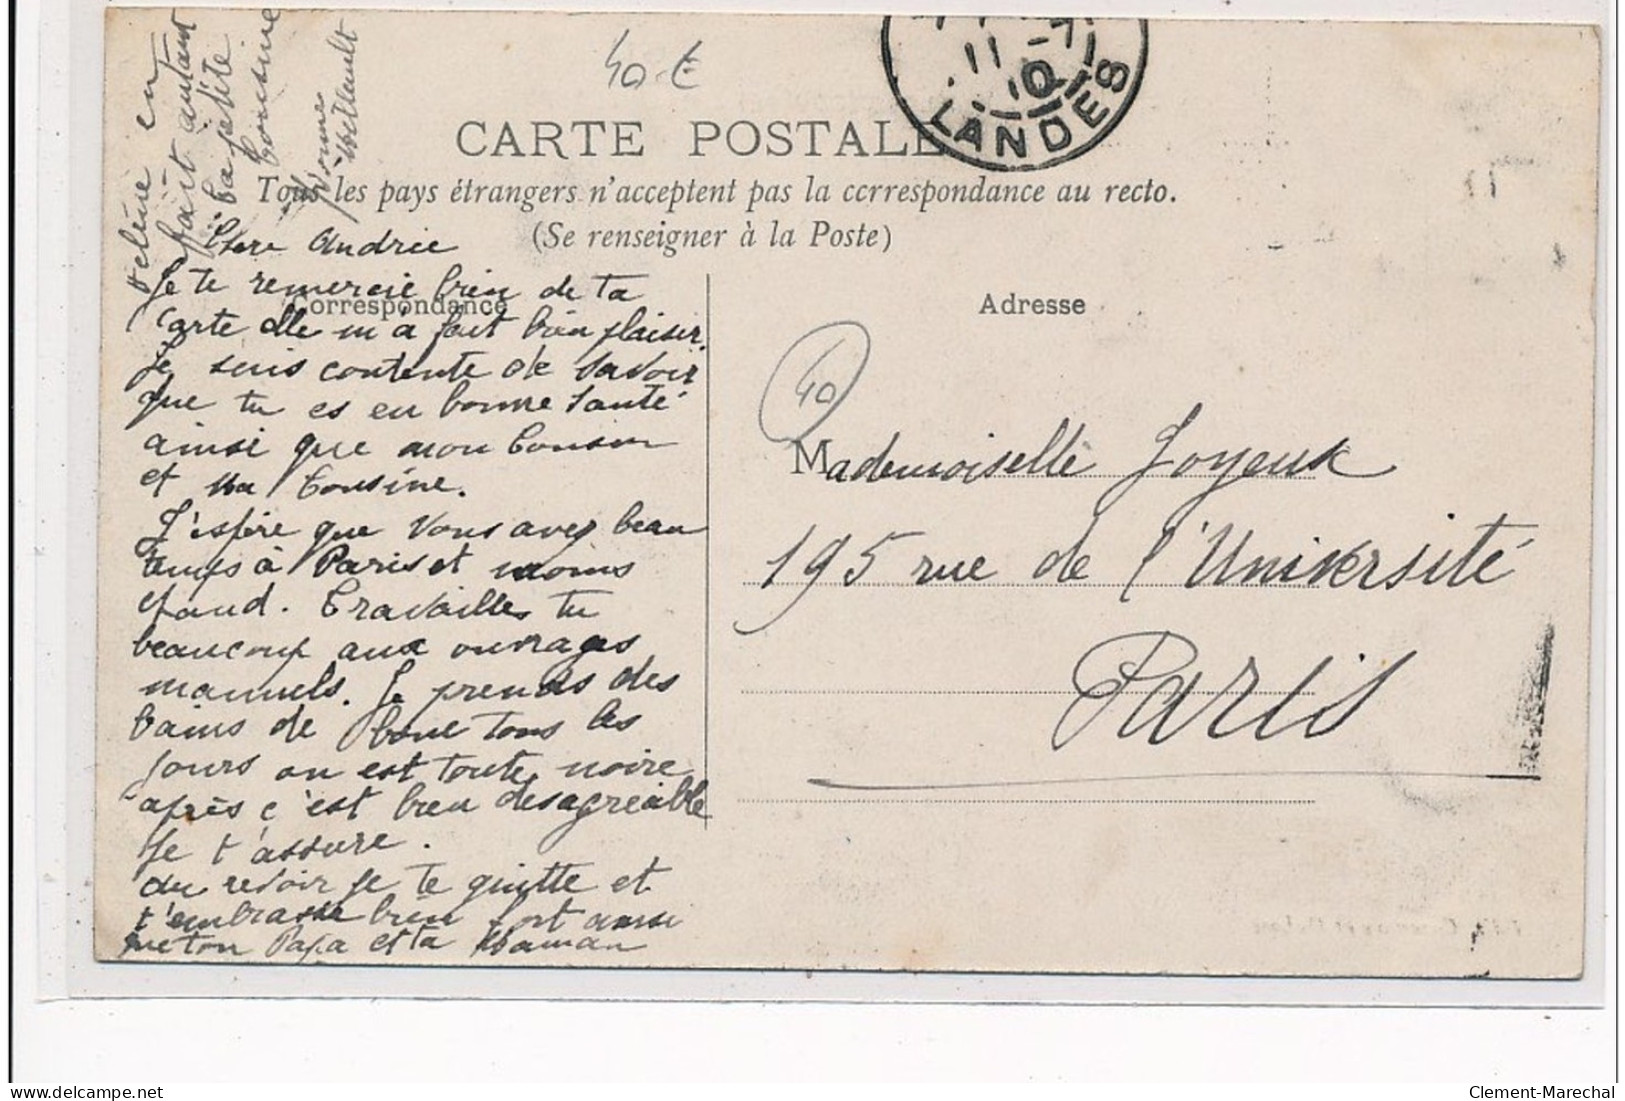 40-€
11 -7
10
LANDES
CARTE POSTALE
Tous les pays étrangers n'acceptent pas la correspondance au recto.
(Se renseigner à la Poste)
Correspondance
Adresse
Chere Andrée
Je te remercie bien de ta
carte elle m'a fait bien plaisir.
Je suis contente de savoir
que tu es en bonne santé
ainsi que mon Cousin
et ma Cousine.
J'espère que vous avez beau
temps à Paris et moins
chaud. Travailles tu
beaucoup aux ouvrages
manuels. Je prends des
bains de boue tous les
jours on est toute noire
après c'est bien desagréable
Je t'assure.
Au revoir Je te quitte et
t'embrasse bien fort ainsi
que ton Papa et ta Maman
Helène en
fait autant
Ta petite
Cousine
Yvonne
40
Mademoiselle Joyeux
195 rue de l'Université
Paris
Clement-Marechal